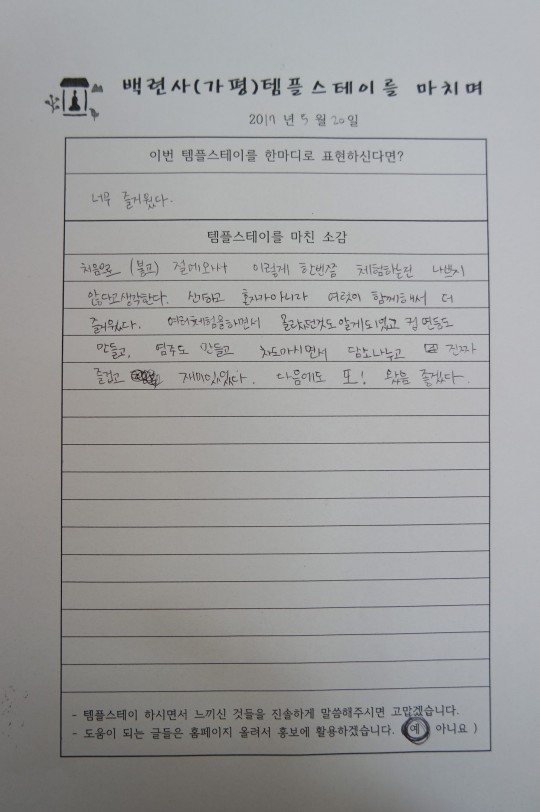 백련사(가평)템플스테이를 마치며
2017 년 5 월 20일
이번 템플스테이를 한마디로 표현하신다면?
너무 즐거웠다.
템플스테이를 마친 소감
처음으로 (불교) 절에와서 이렇게 한번쯤 체험하는건 나쁘지
않다고생각한다. 신기하고 혼자가아니라 여럿이 함께해서 더
즐거웠다. 여러체험을하면서 몰랐던것도알게되였고 컵연등도
만들고, 염주도 만들고 차도마시면서 담소나누고 진짜
즐겁고 재미있었다. 다음에도 또! 왔음 좋겠다.
- 템플스테이 하시면서 느끼신 것들을 진솔하게 말씀해주시면 고맙겠습니다.
- 도움이 되는 글들은 홈페이지 올려서 홍보에 활용하겠습니다. (예 아니요 )